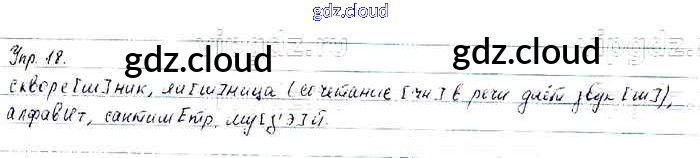 gdz.cloud
Упр. 18.
gdz.cloud gdz.cloud
скворе[ш]ник, яи[ш]ница (сочетание [чн] в речи даёт звук [ш]),
алфавИт, сантимЕтр, му[з'э]й.
gdz.cloud gdz.cloud